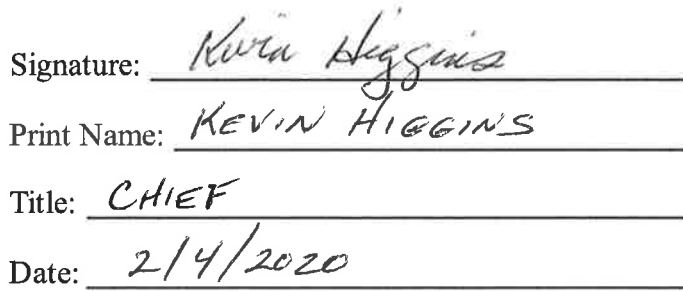 Signature: Kevin Higgins
Print Name: KEVIN HIGGINS
Title: CHIEF
Date: 2/4/2020